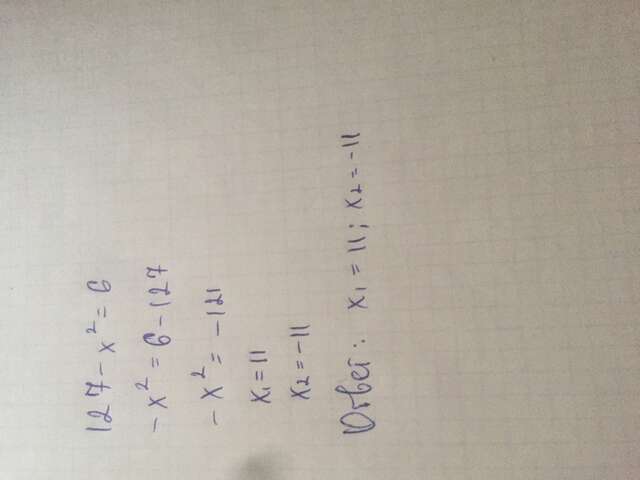 127 - x² = 6
-x² = 6 - 127
-x² = -121
x₁ = 11
x₂ = -11
Ответ: x₁ = 11; x₂ = -11